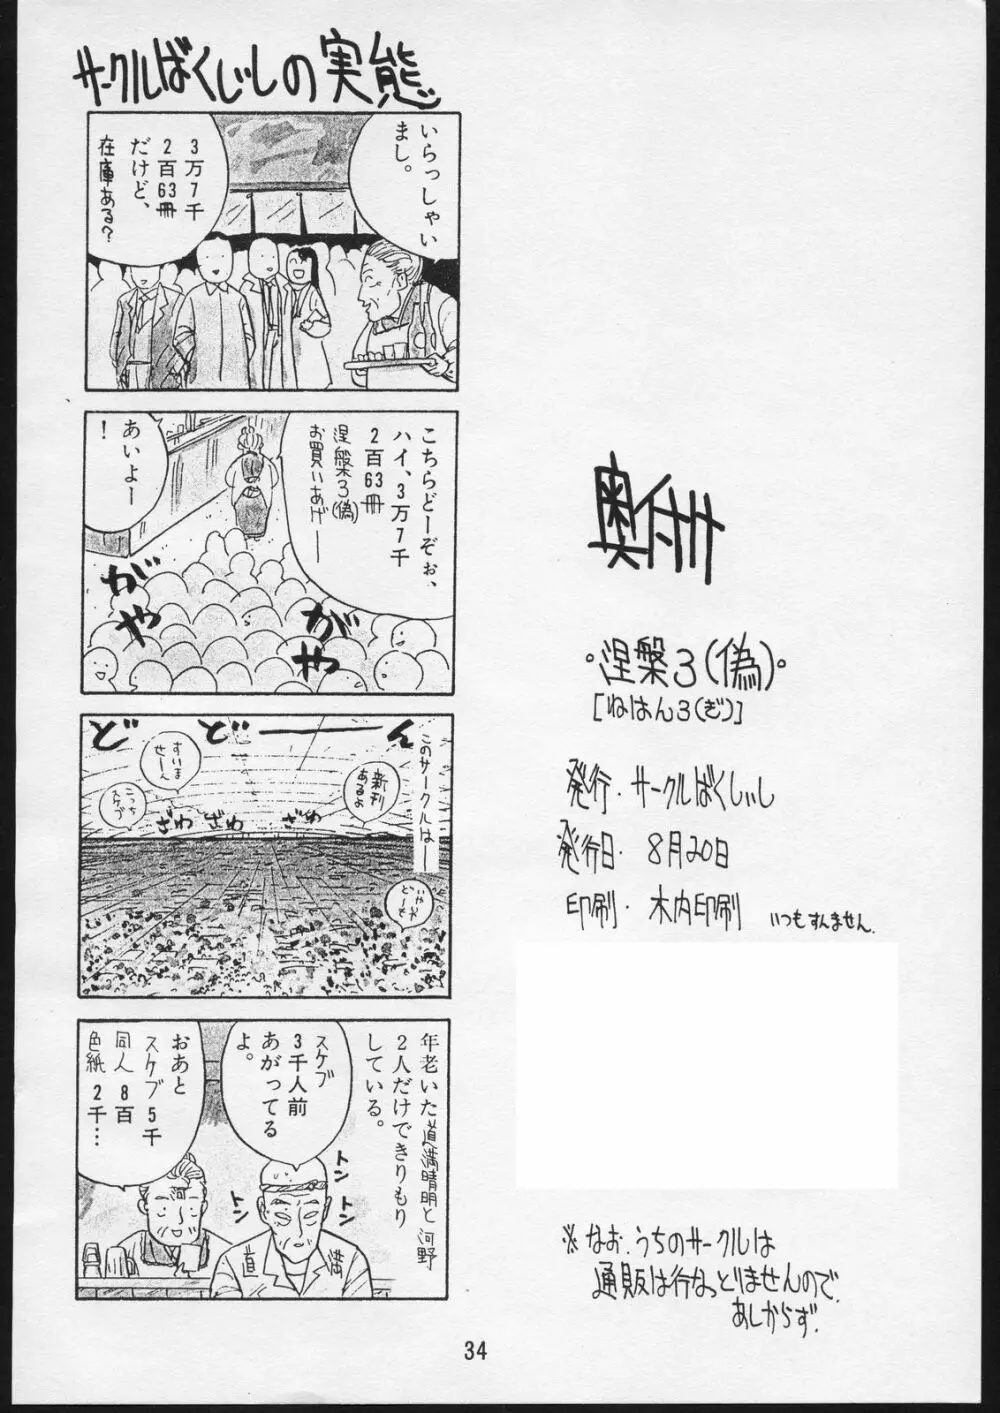 サークルばくしぃしの実態
いらっしゃい
まし。
3万7千
2百63冊
だけど、
在庫ある?
こちらどーぞぉ、
ハイ、3万7千
2百63冊
涅槃3(偽)
お買いあげ——
あいよー
!
がや
がや
ど ど——ん
このサークルは——
新刊
あるよ
すいま
せーん
こっち
スケブ
ざわ ざわ ざわ
年老いた道満晴明と河野
2人だけできりもり
している。
スケブ
3千人前
あがってる
よ。
おあと
スケブ5千
同人8百
色紙2千…
トン
トン
トン
トン
河
道 満
奥付
・涅槃3(偽)・
[ねはん3(ぎ)]
発行・サークルばくしぃし
発行日・8月20日
印刷・木内印刷 いつもすんません.
※なお、うちのサークルは
通販は行なっとりませんので、
あしからず.
34